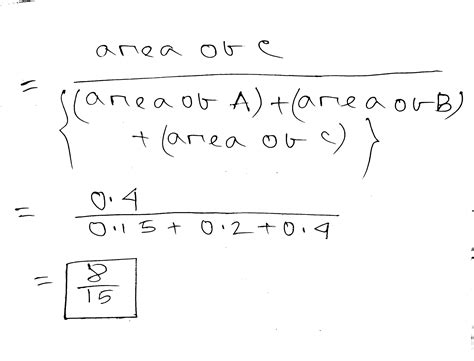 area of C
= {(area of A) + (area of B)
+ (area of C)}
= 0.4
0.15 + 0.2 + 0.4
= 8
15